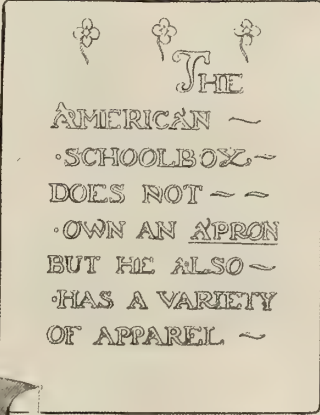 THE
AMERICAN ~
·SCHOOLBOY~
DOES NOT ~ ~
·OWN AN APRON
BUT HE ALSO ~
·HAS A VARIETY
OF APPAREL ~